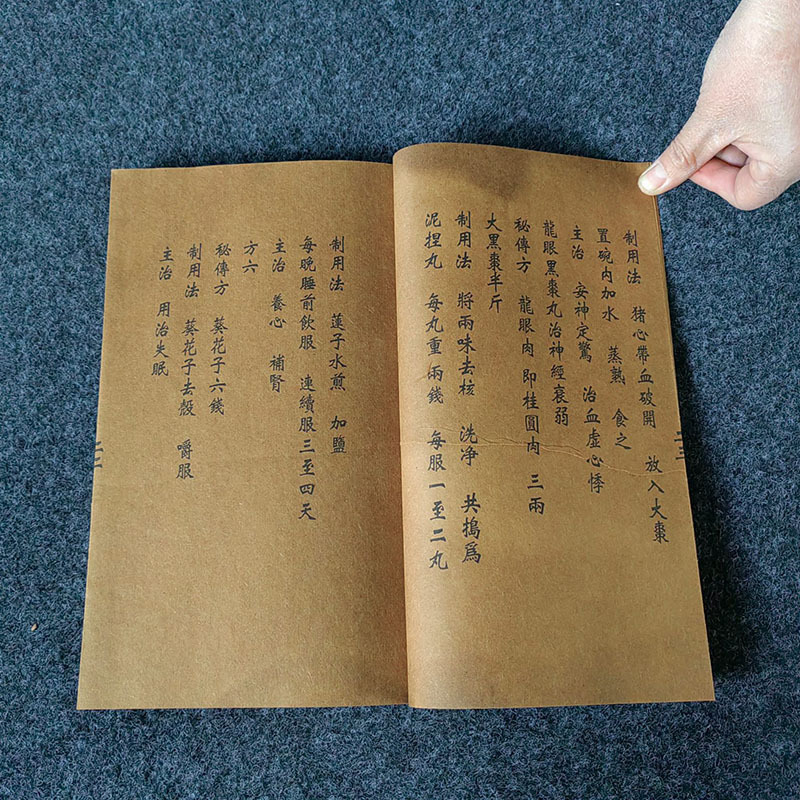 制用法　猪心帶血破開　放入大棗
置碗内加水　蒸熟　食之
主治　安神定驚　治血虛心悸
龍眼黑棗丸治神經衰弱
秘傳方　龍眼肉即桂圓肉　三兩
大黑棗半斤
制用法　將兩味去核　洗净　共搗爲
泥捏丸　每丸重兩錢　每服一至二丸
制用法　蓮子水煎　加鹽
每晚睡前飲服　連續服三至四天
主治　養心　補腎
方六
秘傳方　葵花子六錢
制用法　葵花子去殼　嚼服
主治　用治失眠